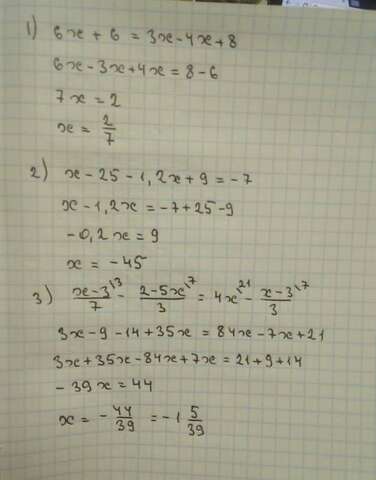 1) 6x + 6 = 3x - 4x + 8
6x - 3x + 4x = 8 - 6
7x = 2
x = 2/7
2) x - 25 - 1,2x + 9 = -7
x - 1,2x = -7 + 25 - 9
-0,2x = 9
x = -45
3) x-3\3/7 - 2-5x\7/3 = 4x\21 - x-3\7/3
3x - 9 - 14 + 35x = 84x - 7x + 21
3x + 35x - 84x + 7x = 21 + 9 + 14
- 39x = 44
x = - 44/39 = -1 5/39